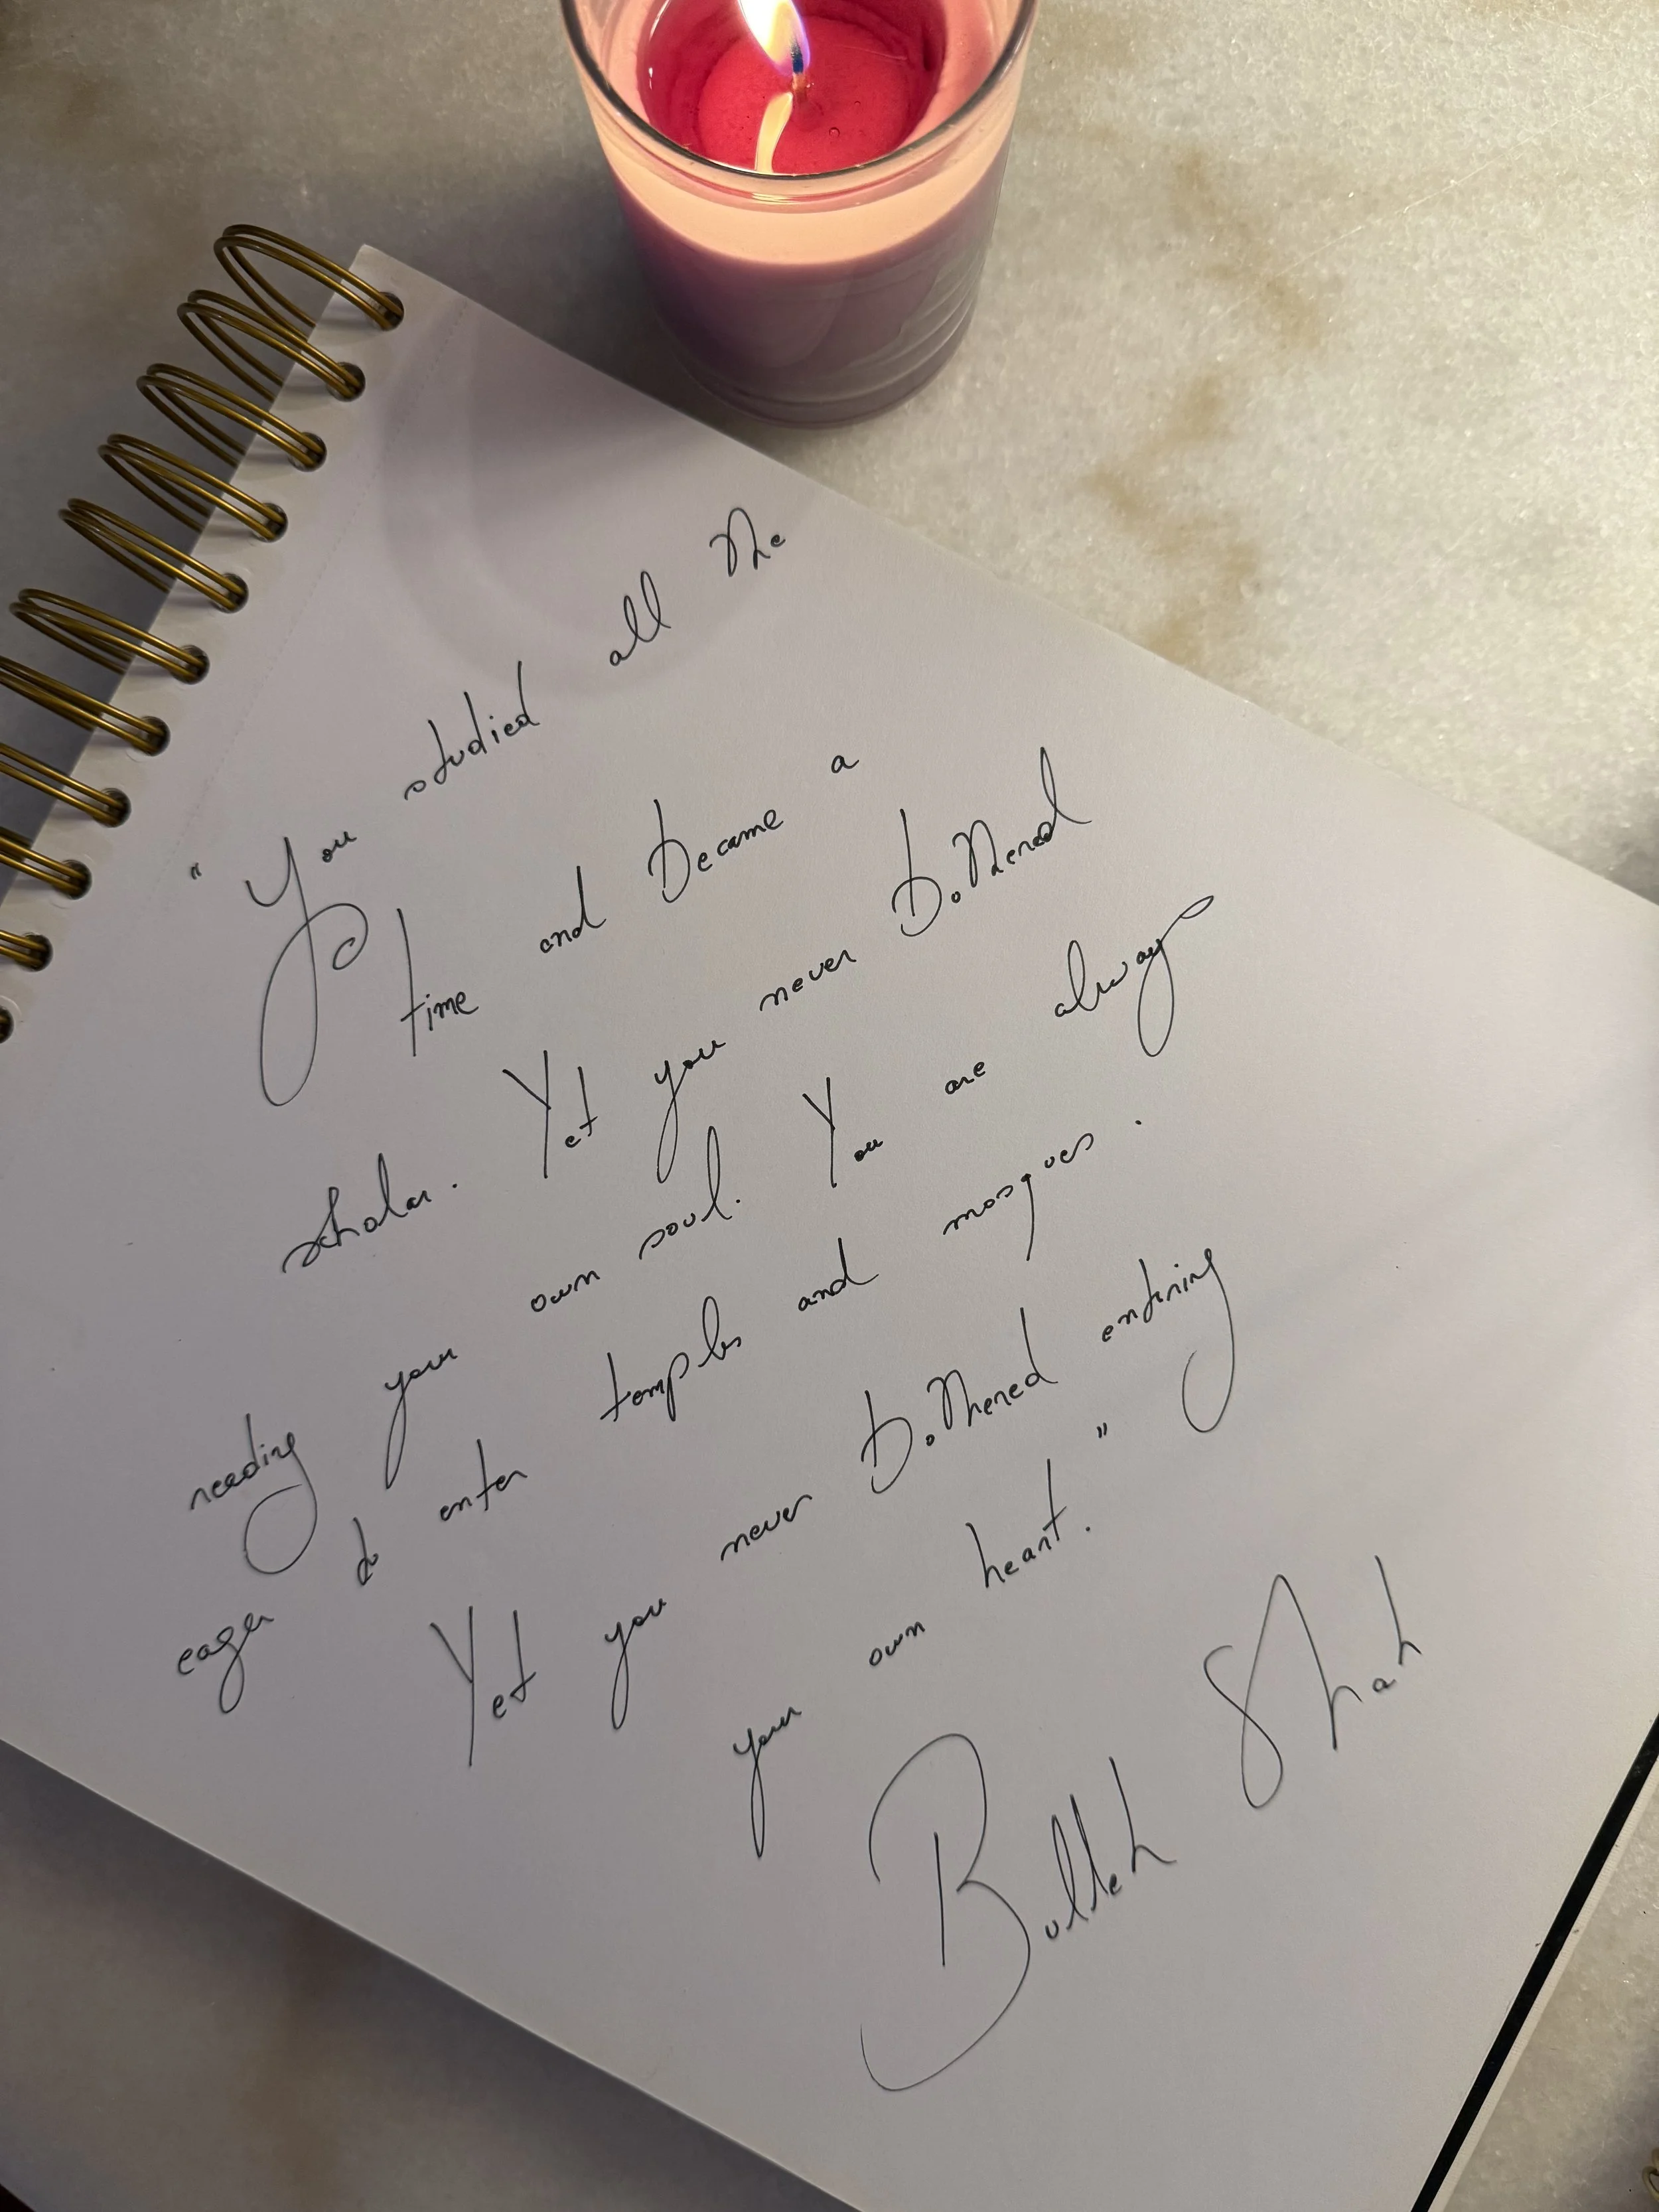 "You studied all the
time and became a
scholar. Yet you never bothered
reading your own soul. You are always
eager to enter temples and mosques.
Yet you never bothered entering
your own heart."
Bulleh Shah